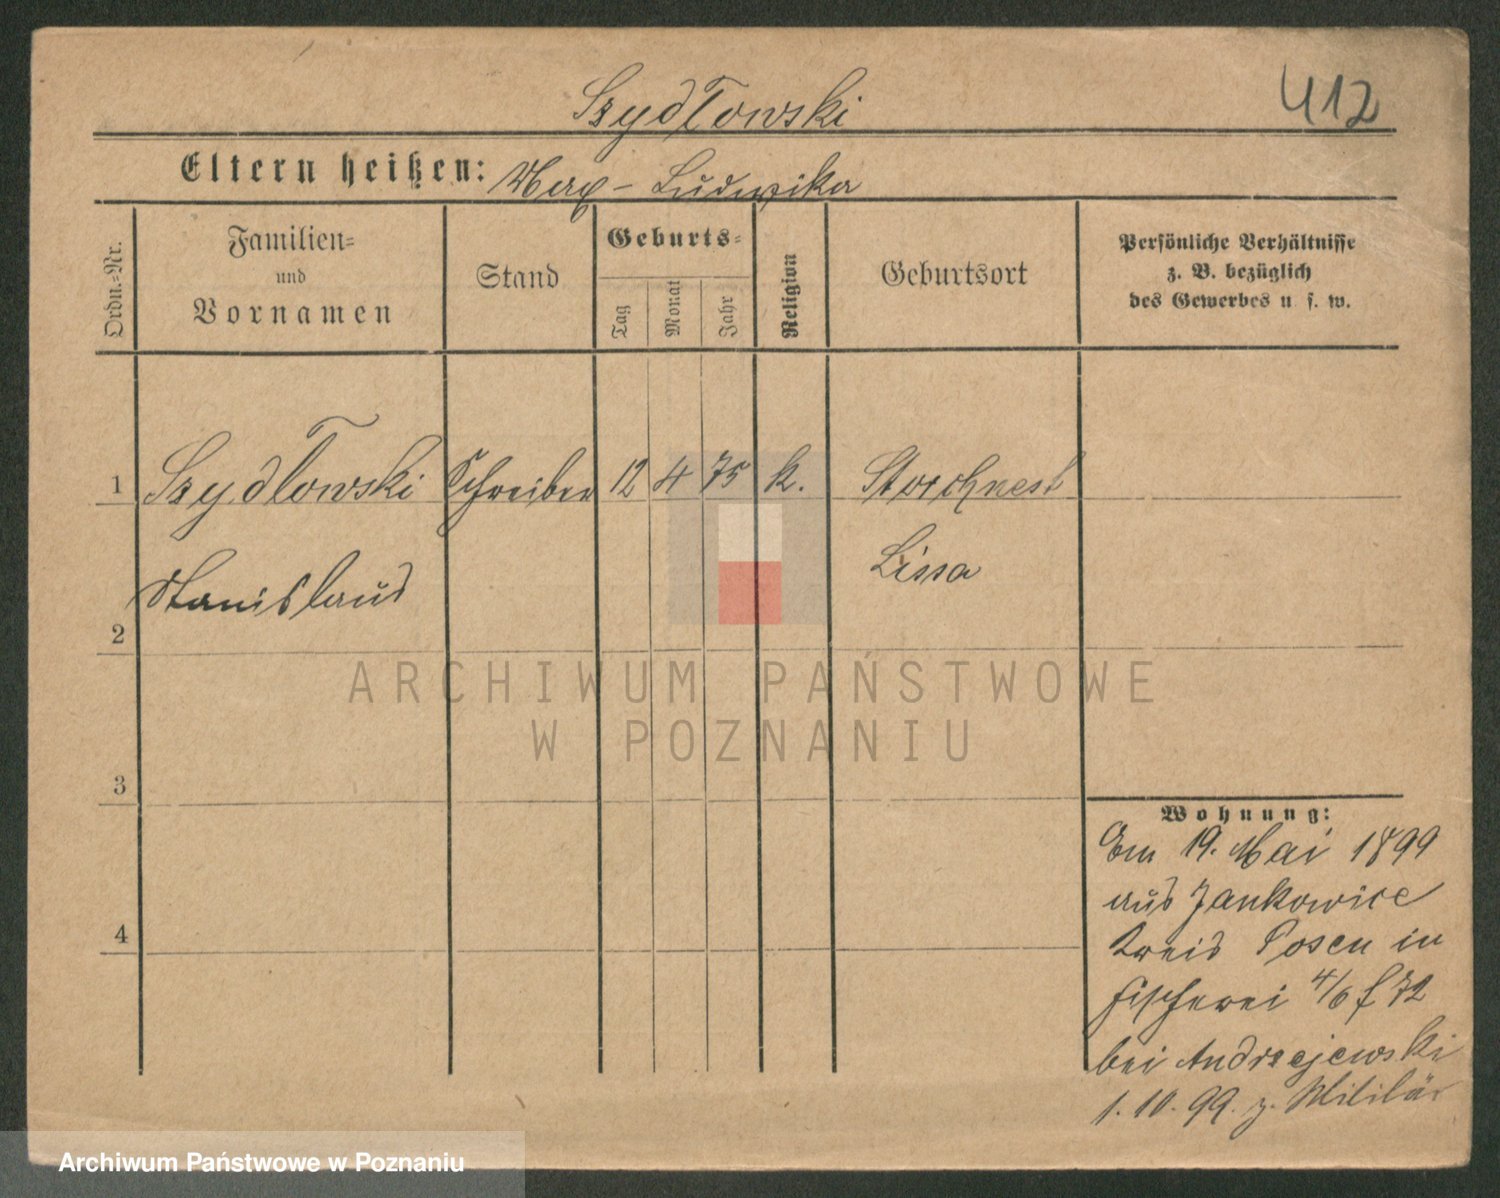 Szydlowski
412
Eltern heißen: Max - Ludwika
Ordn.-Nr.
Familien-
und
Vornamen
Stand
Geburts-
Tag
Monat
Jahr
Religion
Geburtsort
Persönliche Verhältnisse
z. B. bezüglich
des Gewerbes u. s. w.
1 Szydlowski Schreiber 12 4 75 k. Storchnest
Lissa
Stanislaus
2
3
4
Wohnung:
Em 19. Mai 1899
aus Jankowice
Kreis Posen in
Fischerei 4/6 f 72
bei Andrzejewski
1. 10. 99. z. Militär
ARCHIWUM PAŃSTWOWE
W POZNANIU
Archiwum Państwowe w Poznaniu